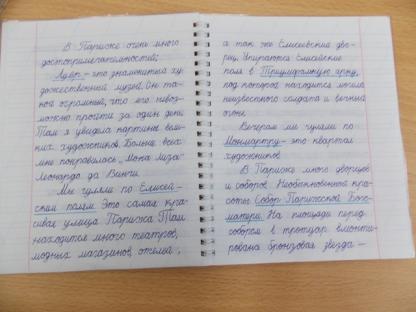 В Париже очень много
достопримечательностей;
Лувр - это знаменитый ху-
дожественный музей. Он та-
кой огромный, что его невоз-
можно пройти за один день.
Там я увидела картины вели-
ких художников. Больше всех
мне понравилась „Мона Лиза"
Леонардо да Винчи.
Мы гуляли по Елисей-
ским полям. Это самая кра-
сивая улица Парижа. Там
находится много театров,
модных магазинов, отелей,
а так же Елисеевский дво-
рец. Упираются Елисейские
поля в Триумфальную арку,
под которой находится могила
неизвестного солдата и вечный
огонь.
Вечерам мы гуляли по
Монмартру - это квартал
художников.
В Париже много дворцов
и соборов. Необыкновенной кра-
соты Собор Парижской Бого-
матери. На площади перед
собором в тротуар вмонти-
рована бронзовая звезда -